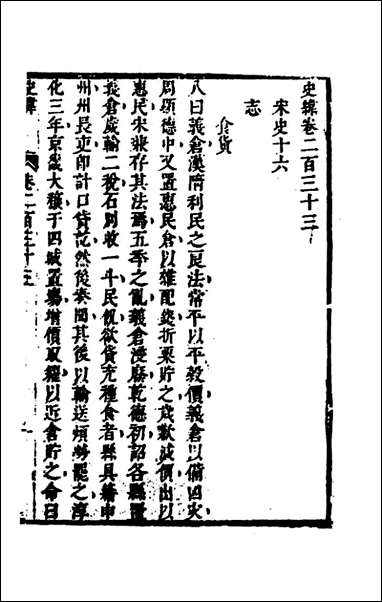 史緯卷二百三十三
宋史十六
志
食貨
八曰義倉漢隋利民之良法常平以平穀價義倉以備凶災
周顯德中又置惠民倉以雜配錢折粟貯之歲歉減價出以
惠民宋兼存其法焉五季之亂義倉浸廢乾德初詔各縣置
義倉歲輸二稅石別收一斗民饑欲貸充種食者縣具籍申
州州長吏即計口貸訖然後奏聞其後以輸送煩勞罷之淳
化三年京畿大穰于四城置場增價取糴以近倉貯之命曰
史緯
卷二百三十三
一